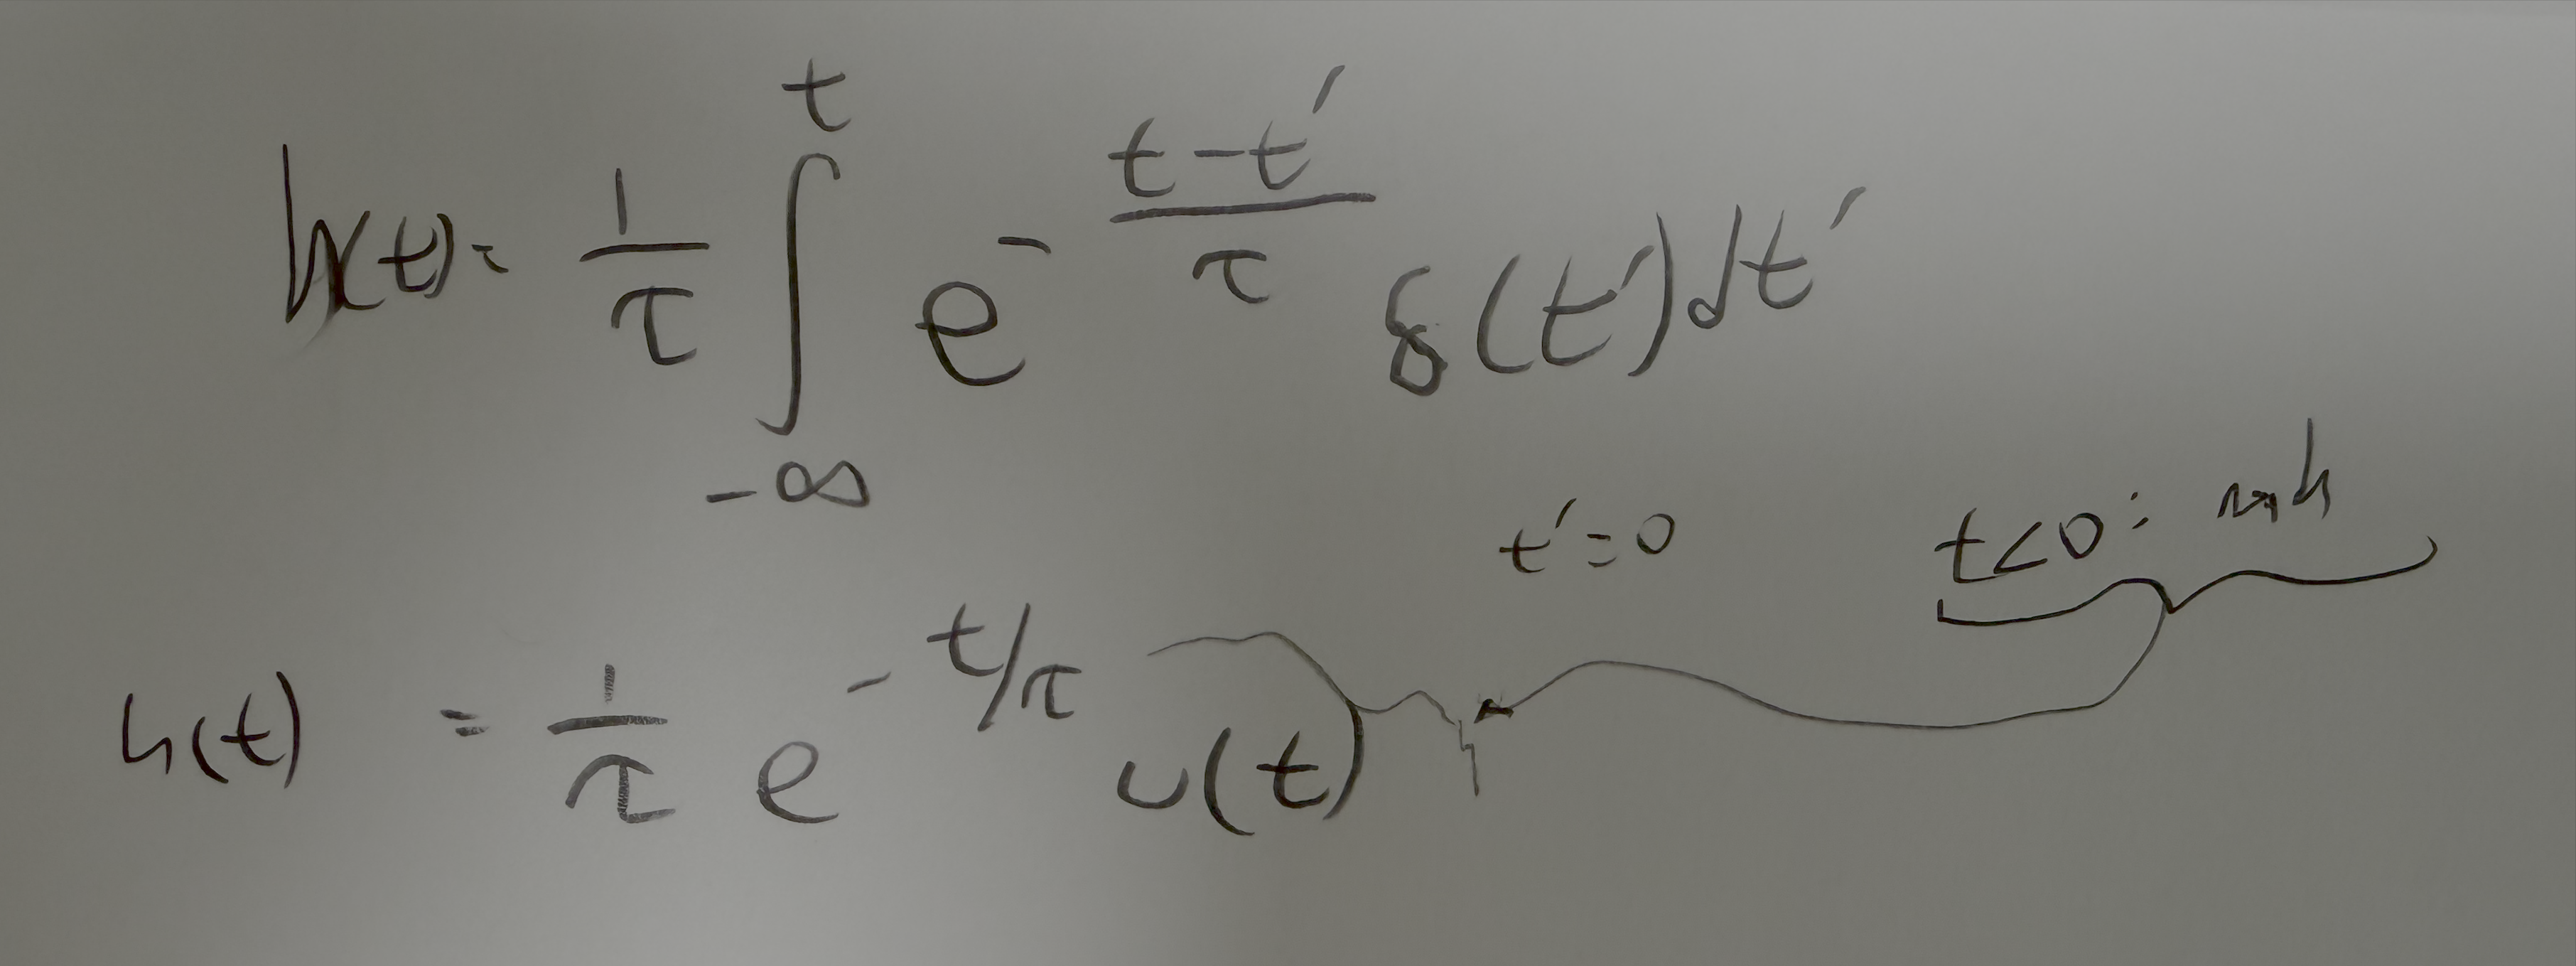 h(t) = 1/τ ∫_{-∞}^{t} e^{-(t-t')/τ} δ(t') dt'
t' = 0
t<0:
h(t) = 1/τ e^{-t/τ} u(t)